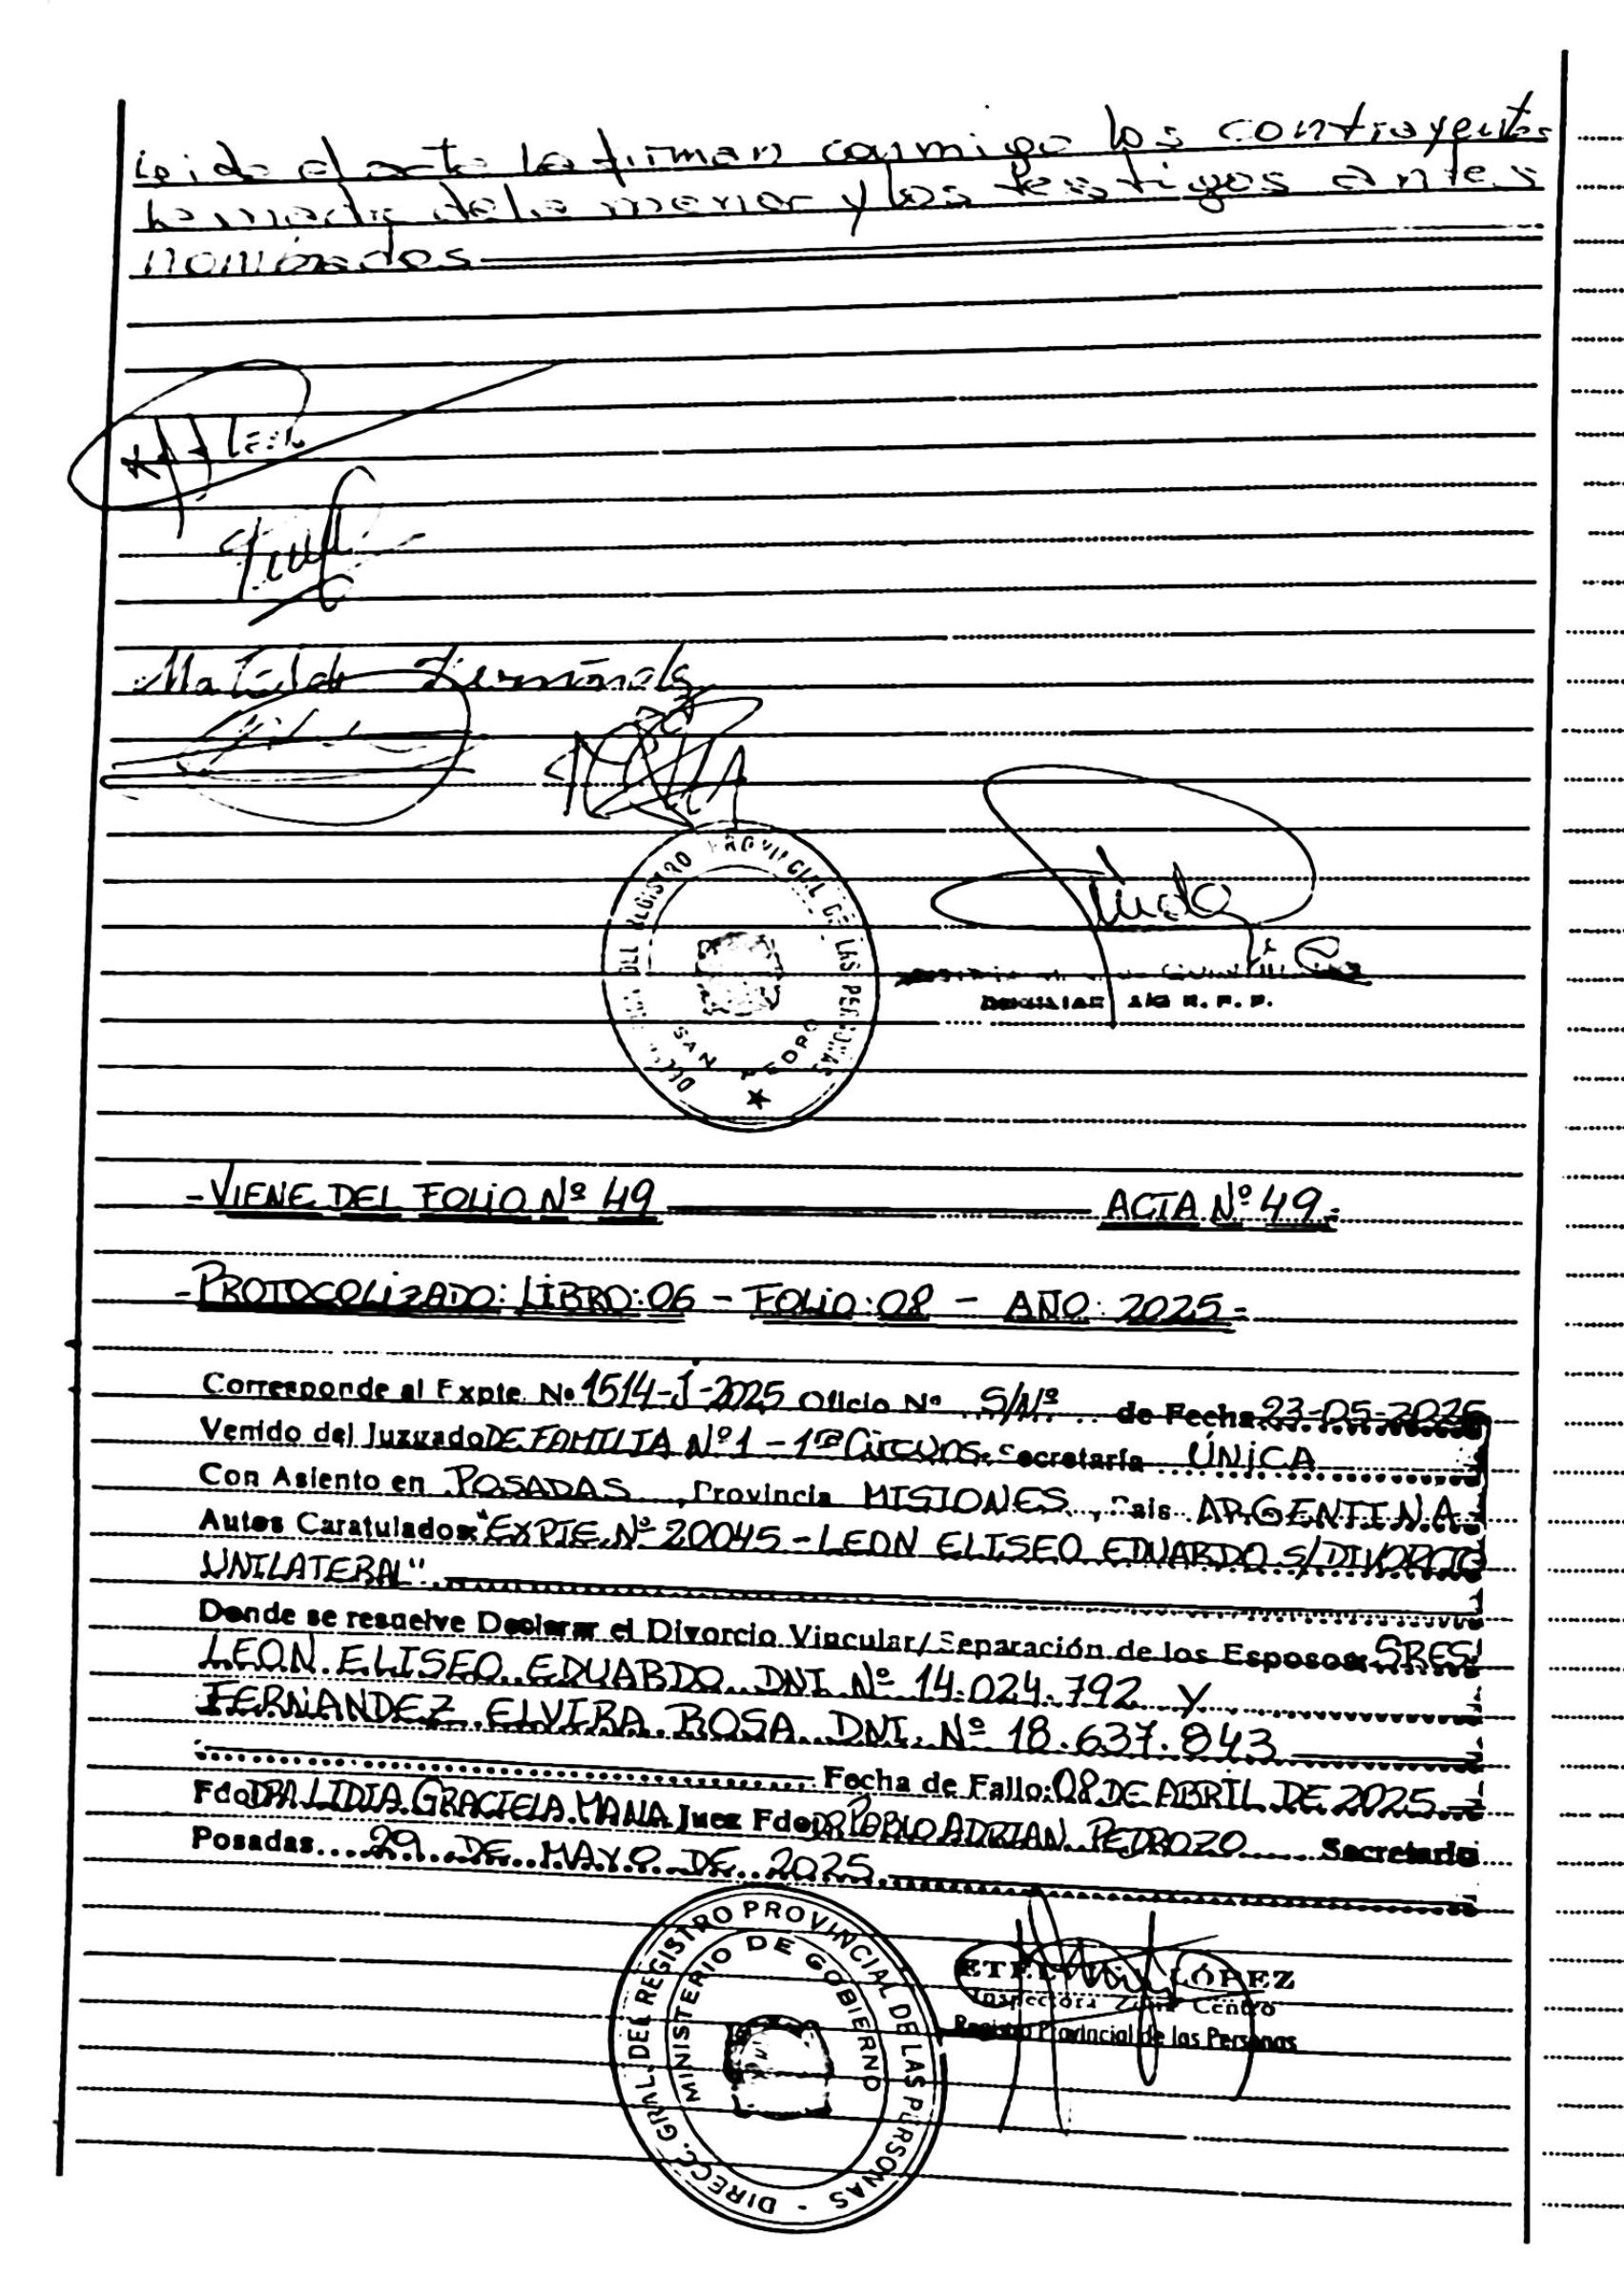 Leida el acta la firman conmigo los contrayentes
la madre de la menor y los testigos antes
nombrados
Matilde
DEL REGISTRO PROVINCIAL DE LAS PERSONAS
SAN PEDRO
AUXILIAR A/C R. P. P.
-VIENE DEL FOLIO Nº 49 ACTA Nº 49.-
-PROTOCOLIZADO: LIBRO: 06 - FOLIO: 08 - AÑO: 2025-
Corresponde al Expte. Nº 1514-J-2025 Oficio Nº S/Nº de Fecha 23-05-2025
Venido del Juzgado DE FAMILIA Nº 1 - 1ra Circuns. Secretaría ÚNICA
Con Asiento en POSADAS, Provincia MISIONES, Pais ARGENTINA
Autos Caratulados: "EXPTE. Nº 20045 - LEON ELISEO EDUARDO S/DIVORCIO
UNILATERAL"
Donde se resuelve Declarar el Divorcio Vincular/Separación de los Esposos: SRES.
LEON ELISEO EDUARDO DNI Nº 14.024.792 Y
FERNANDEZ ELVIRA ROSA DNI. Nº 18.637.843
Fecha de Fallo: 08 DE ABRIL DE 2025
Fdo DRA LIDIA GRACIELA MANA Juez Fdo DR PABLO ADRIAN PEDROZO Secretario
Posadas 29 DE MAYO DE 2025.
DIRECC. GRAL. DEL REGISTRO PROVINCIAL DE LAS PERSONAS -
MINISTERIO DE GOBIERNO
LÓPEZ
Inspectora Zona Centro
Registro Provincial de las Personas